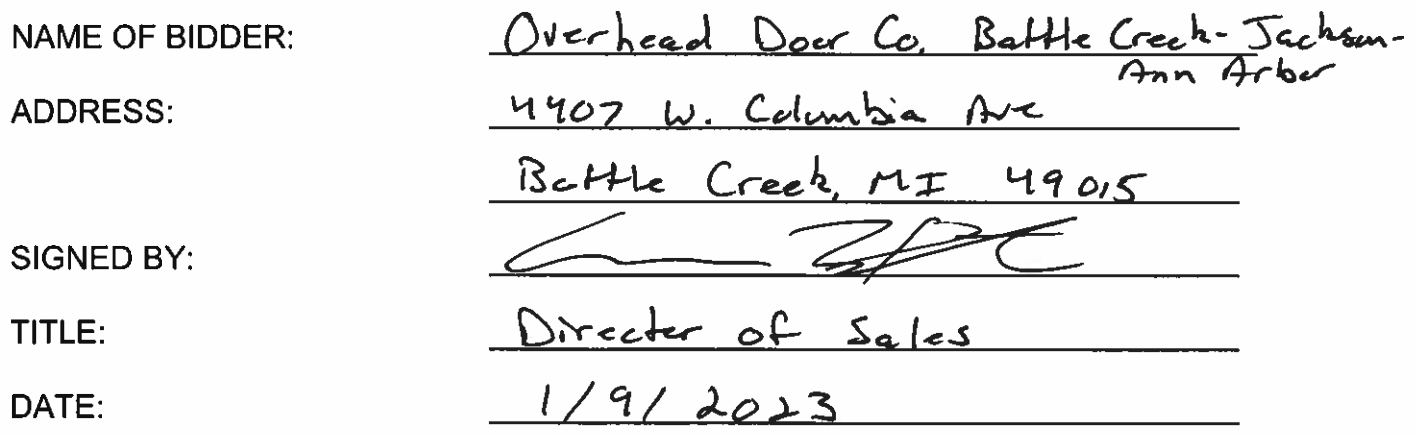 NAME OF BIDDER: Overhead Door Co. Battle Creek-Jackson-
Ann Arbor
ADDRESS: 4407 W. Columbia Ave
Battle Creek, MI 49015
SIGNED BY:
TITLE: Director of Sales
DATE: 1/9/2023